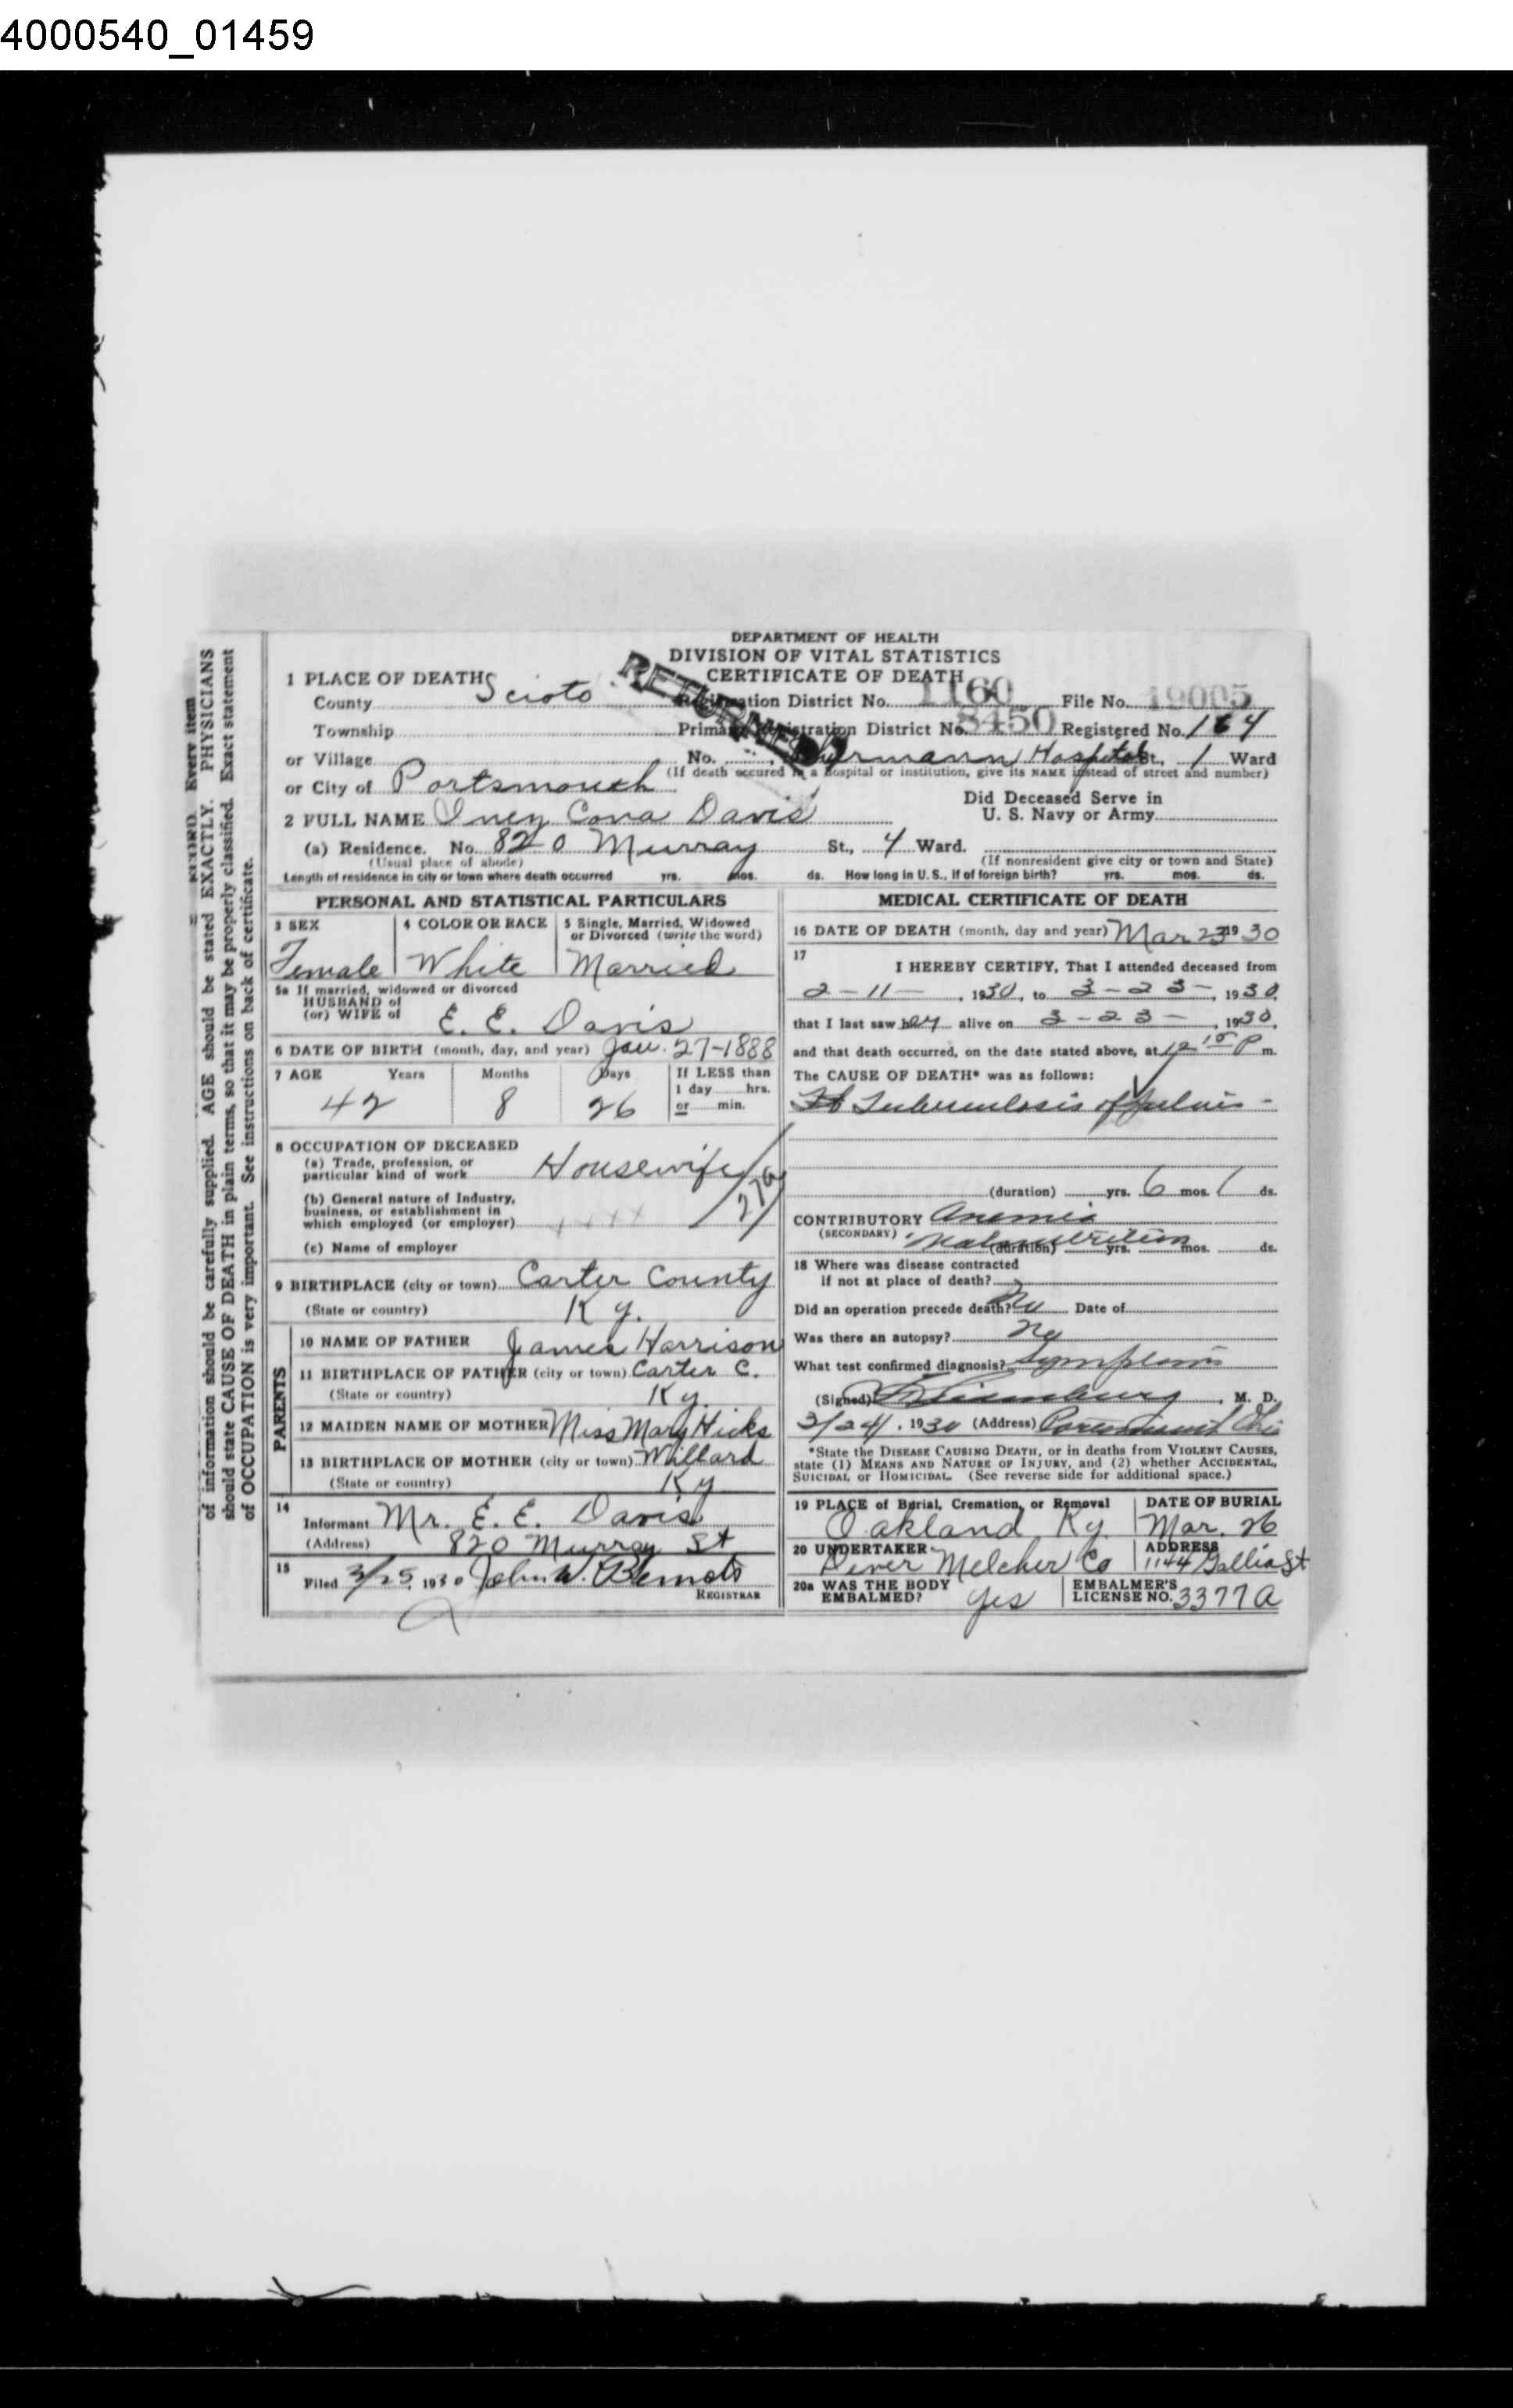 4000540_01459
DEPARTMENT OF HEALTH
DIVISION OF VITAL STATISTICS
CERTIFICATE OF DEATH
RETURNED
1 PLACE OF DEATH
County Scioto
Registration District No. 1160 File No. 19005
Township Primary Registration District No. 8450 Registered No. 164
or Village No. Hospital St., 1 Ward
(If death occured in a hospital or institution, give its NAME instead of street and number)
or City of Portsmouth
Did Deceased Serve in
U. S. Navy or Army
2 FULL NAME Inez Cona Davis
(a) Residence. No. 820 Murray St., 4 Ward.
(Usual place of abode) (If nonresident give city or town and State)
Length of residence in city or town where death occurred yrs. mos. ds. How long in U. S., if of foreign birth? yrs. mos. ds.
PERSONAL AND STATISTICAL PARTICULARS
3 SEX 4 COLOR OR RACE 5 Single, Married, Widowed
or Divorced (write the word)
Female White Married
5a If married, widowed or divorced
HUSBAND of
(or) WIFE of E. E. Davis
6 DATE OF BIRTH (month, day, and year) Jan. 27-1888
7 AGE Years Months Days If LESS than
1 day hrs.
or min.
42 8 26
8 OCCUPATION OF DECEASED
(a) Trade, profession, or
particular kind of work Housewife
(b) General nature of Industry,
business, or establishment in
which employed (or employer)
(c) Name of employer
9 BIRTHPLACE (city or town) Carter County
(State or country) Ky.
PARENTS
10 NAME OF FATHER James Harrison
11 BIRTHPLACE OF FATHER (city or town) Carter C.
(State or country) Ky.
12 MAIDEN NAME OF MOTHER Miss Mary Hicks
13 BIRTHPLACE OF MOTHER (city or town) Willard
(State or country) Ky
14
Informant Mr. E. E. Davis
(Address) 820 Murray St
15
Filed 3/25, 1930 John W.
REGISTRAR
MEDICAL CERTIFICATE OF DEATH
16 DATE OF DEATH (month, day and year) Mar 23 1930
17
I HEREBY CERTIFY, That I attended deceased from
2-11-, 1930, to 3-23-, 1930,
that I last saw her alive on 3-23-, 1930,
and that death occurred, on the date stated above, at 12 15 P m.
The CAUSE OF DEATH* was as follows:
Tuberculosis of
(duration) yrs. 6 mos. 1 ds.
CONTRIBUTORY Anemia
(SECONDARY) Malnutrition
(duration) yrs. mos. ds.
18 Where was disease contracted
if not at place of death?
Did an operation precede death? No Date of
Was there an autopsy? No
What test confirmed diagnosis? Symptoms
(Signed) , M. D.
3/24, 1930 (Address) Portsmouth Ohio
*State the DISEASE CAUSING DEATH, or in deaths from VIOLENT CAUSES,
state (1) MEANS AND NATURE OF INJURY, and (2) whether ACCIDENTAL,
SUICIDAL or HOMICIDAL. (See reverse side for additional space.)
19 PLACE of Burial, Cremation, or Removal DATE OF BURIAL
Oakland Ky. Mar. 26
20 UNDERTAKER ADDRESS
Melcher Co 1144 Gallia St
20a WAS THE BODY
EMBALMED? Yes
EMBALMER'S
LICENSE NO. 3377A
Every item
of information should be carefully supplied. AGE should be stated EXACTLY. PHYSICIANS
should state CAUSE OF DEATH in plain terms, so that it may be properly classified. Exact statement
of OCCUPATION is very important. See instructions on back of certificate.